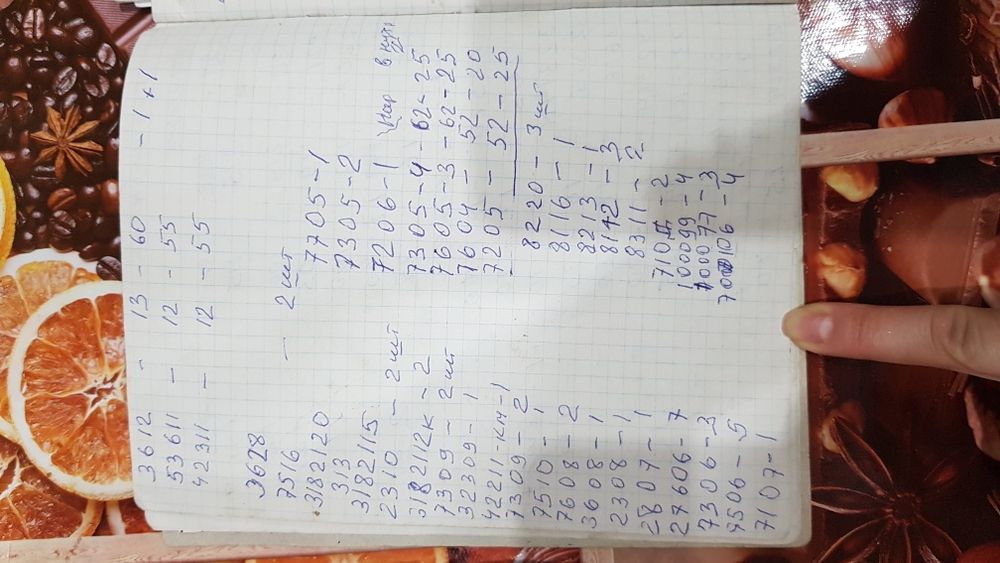 3612 - 13 - 60 - 1 + 1
53611 - 12 - 55
42311 - 12 - 55
3628
7516 - 2 шт
3182120
313
3182115
2310 - 2 шт
318212к - 2
7309 - 2 шт
32309 - 1
42211-км-1
7309 - 2
7510 - 1
7608 - 2
3608 - 1
2308 - 1
2807 - 1
27606-7
7306-3
9506-5
7107-1
7705-1
7305-2
7206-1
7305-4-62-25
7605-3-62-25
7604 - 52-20
7205 - 52-25
8220 - 3 шт
8116 - 1
8213 - 1
8112 - 3
8311 - 2
100099-4